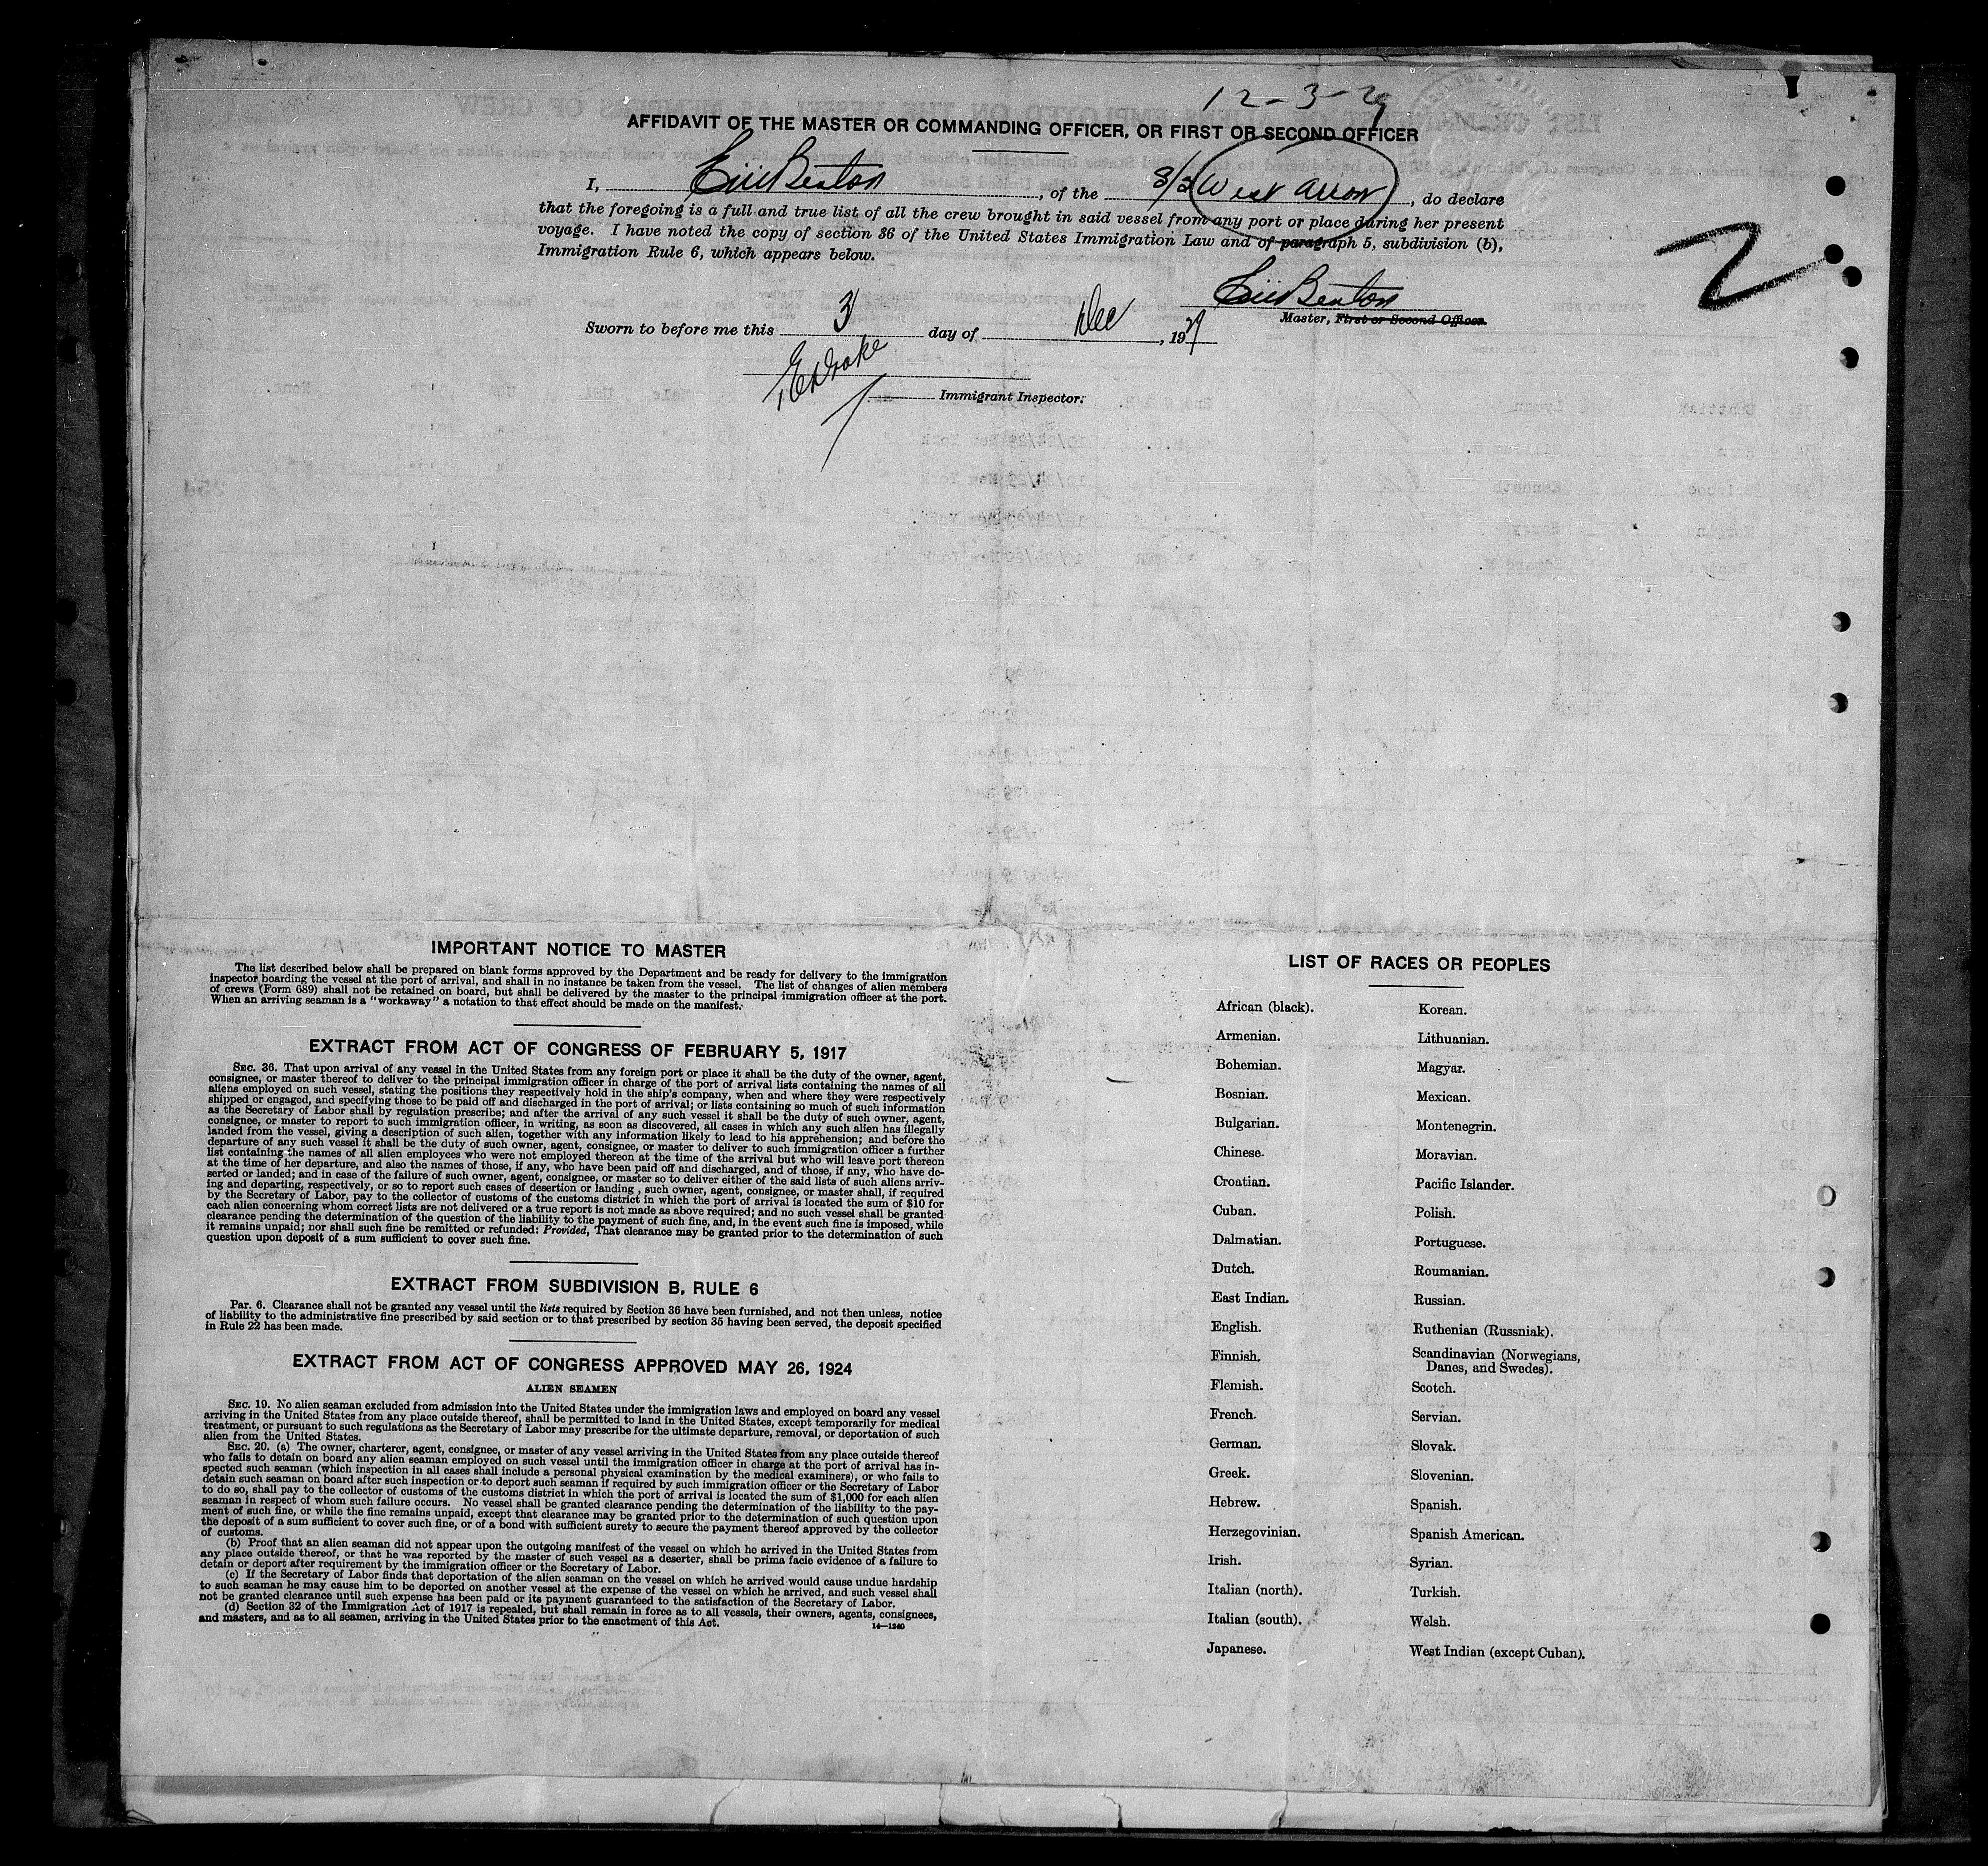 12-3-29
AFFIDAVIT OF THE MASTER OR COMMANDING OFFICER, OR FIRST OR SECOND OFFICER
I, Eric Benton, of the S/S West Arrow, do declare
that the foregoing is a full and true list of all the crew brought in said vessel from any port or place during her present
voyage. I have noted the copy of section 36 of the United States Immigration Law and of paragraph 5, subdivision (b),
Immigration Rule 6, which appears below.
2
Eric Benton
Master, First or Second Officer.
Sworn to before me this 3 day of Dec, 1929
Drake
Immigrant Inspector.
IMPORTANT NOTICE TO MASTER
The list described below shall be prepared on blank forms approved by the Department and be ready for delivery to the immigration
inspector boarding the vessel at the port of arrival, and shall in no instance be taken from the vessel. The list of changes of alien members
of crews (Form 689) shall not be retained on board, but shall be delivered by the master to the principal immigration officer at the port.
When an arriving seaman is a "workaway" a notation to that effect should be made on the manifest.
EXTRACT FROM ACT OF CONGRESS OF FEBRUARY 5, 1917
SEC. 36. That upon arrival of any vessel in the United States from any foreign port or place it shall be the duty of the owner, agent,
consignee, or master thereof to deliver to the principal immigration officer in charge of the port of arrival lists containing the names of all
aliens employed on such vessel, stating the positions they respectively hold in the ship's company, when and where they were respectively
shipped or engaged, and specifying those to be paid off and discharged in the port of arrival; or lists containing so much of such information
as the Secretary of Labor shall by regulation prescribe; and after the arrival of any such vessel it shall be the duty of such owner, agent,
consignee, or master to report to such immigration officer, in writing, as soon as discovered, all cases in which any such alien has illegally
landed from the vessel, giving a description of such alien, together with any information likely to lead to his apprehension; and before the
departure of any such vessel it shall be the duty of such owner, agent, consignee, or master to deliver to such immigration officer a further
list containing the names of all alien employees who were not employed thereon at the time of the arrival but who will leave port thereon
at the time of her departure, and also the names of those, if any, who have been paid off and discharged, and of those, if any, who have de-
serted or landed; and in case of the failure of such owner, agent, consignee, or master so to deliver either of the said lists of such aliens arriv-
ing and departing, respectively, or so to report such cases of desertion or landing, such owner, agent, consignee, or master shall, if required
by the Secretary of Labor, pay to the collector of customs of the customs district in which the port of arrival is located the sum of $10 for
each alien concerning whom correct lists are not delivered or a true report is not made as above required; and no such vessel shall be granted
clearance pending the determination of the question of the liability to the payment of such fine, and, in the event such fine is imposed, while
it remains unpaid; nor shall such fine be remitted or refunded: Provided, That clearance may be granted prior to the determination of such
question upon deposit of a sum sufficient to cover such fine.
EXTRACT FROM SUBDIVISION B, RULE 6
Par. 6. Clearance shall not be granted any vessel until the lists required by Section 36 have been furnished, and not then unless, notice
of liability to the administrative fine prescribed by said section or to that prescribed by section 35 having been served, the deposit specified
in Rule 22 has been made.
EXTRACT FROM ACT OF CONGRESS APPROVED MAY 26, 1924
ALIEN SEAMEN
SEC. 19. No alien seaman excluded from admission into the United States under the immigration laws and employed on board any vessel
arriving in the United States from any place outside thereof, shall be permitted to land in the United States, except temporarily for medical
treatment, or pursuant to such regulations as the Secretary of Labor may prescribe for the ultimate departure, removal, or deportation of such
alien from the United States.
SEC. 20. (a) The owner, charterer, agent, consignee, or master of any vessel arriving in the United States from any place outside thereof
who fails to detain on board any alien seaman employed on such vessel until the immigration officer in charge at the port of arrival has in-
spected such seaman (which inspection in all cases shall include a personal physical examination by the medical examiners), or who fails to
detain such seaman on board after such inspection or to deport such seaman if required by such immigration officer or the Secretary of Labor
to do so, shall pay to the collector of customs of the customs district in which the port of arrival is located the sum of $1,000 for each alien
seaman in respect of whom such failure occurs. No vessel shall be granted clearance pending the determination of the liability to the pay-
ment of such fine, or while the fine remains unpaid, except that clearance may be granted prior to the determination of such question upon
the deposit of a sum sufficient to cover such fine, or of a bond with sufficient surety to secure the payment thereof approved by the collector
of customs.
(b) Proof that an alien seaman did not appear upon the outgoing manifest of the vessel on which he arrived in the United States from
any place outside thereof, or that he was reported by the master of such vessel as a deserter, shall be prima facie evidence of a failure to
detain or deport after requirement by the immigration officer or the Secretary of Labor.
(c) If the Secretary of Labor finds that deportation of the alien seaman on the vessel on which he arrived would cause undue hardship
to such seaman he may cause him to be deported on another vessel at the expense of the vessel on which he arrived, and such vessel shall
not be granted clearance until such expense has been paid or its payment guaranteed to the satisfaction of the Secretary of Labor.
(d) Section 32 of the Immigration Act of 1917 is repealed, but shall remain in force as to all vessels, their owners, agents, consignees,
and masters, and as to all seamen, arriving in the United States prior to the enactment of this Act.
14—1240
LIST OF RACES OR PEOPLES
African (black).
Armenian.
Bohemian.
Bosnian.
Bulgarian.
Chinese.
Croatian.
Cuban.
Dalmatian.
Dutch.
East Indian.
English.
Finnish.
Flemish.
French.
German.
Greek.
Hebrew.
Herzegovinian.
Irish.
Italian (north).
Italian (south).
Japanese.
Korean.
Lithuanian.
Magyar.
Mexican.
Montenegrin.
Moravian.
Pacific Islander.
Polish.
Portuguese.
Roumanian.
Russian.
Ruthenian (Russniak).
Scandinavian (Norwegians,
Danes, and Swedes).
Scotch.
Servian.
Slovak.
Slovenian.
Spanish.
Spanish American.
Syrian.
Turkish.
Welsh.
West Indian (except Cuban).